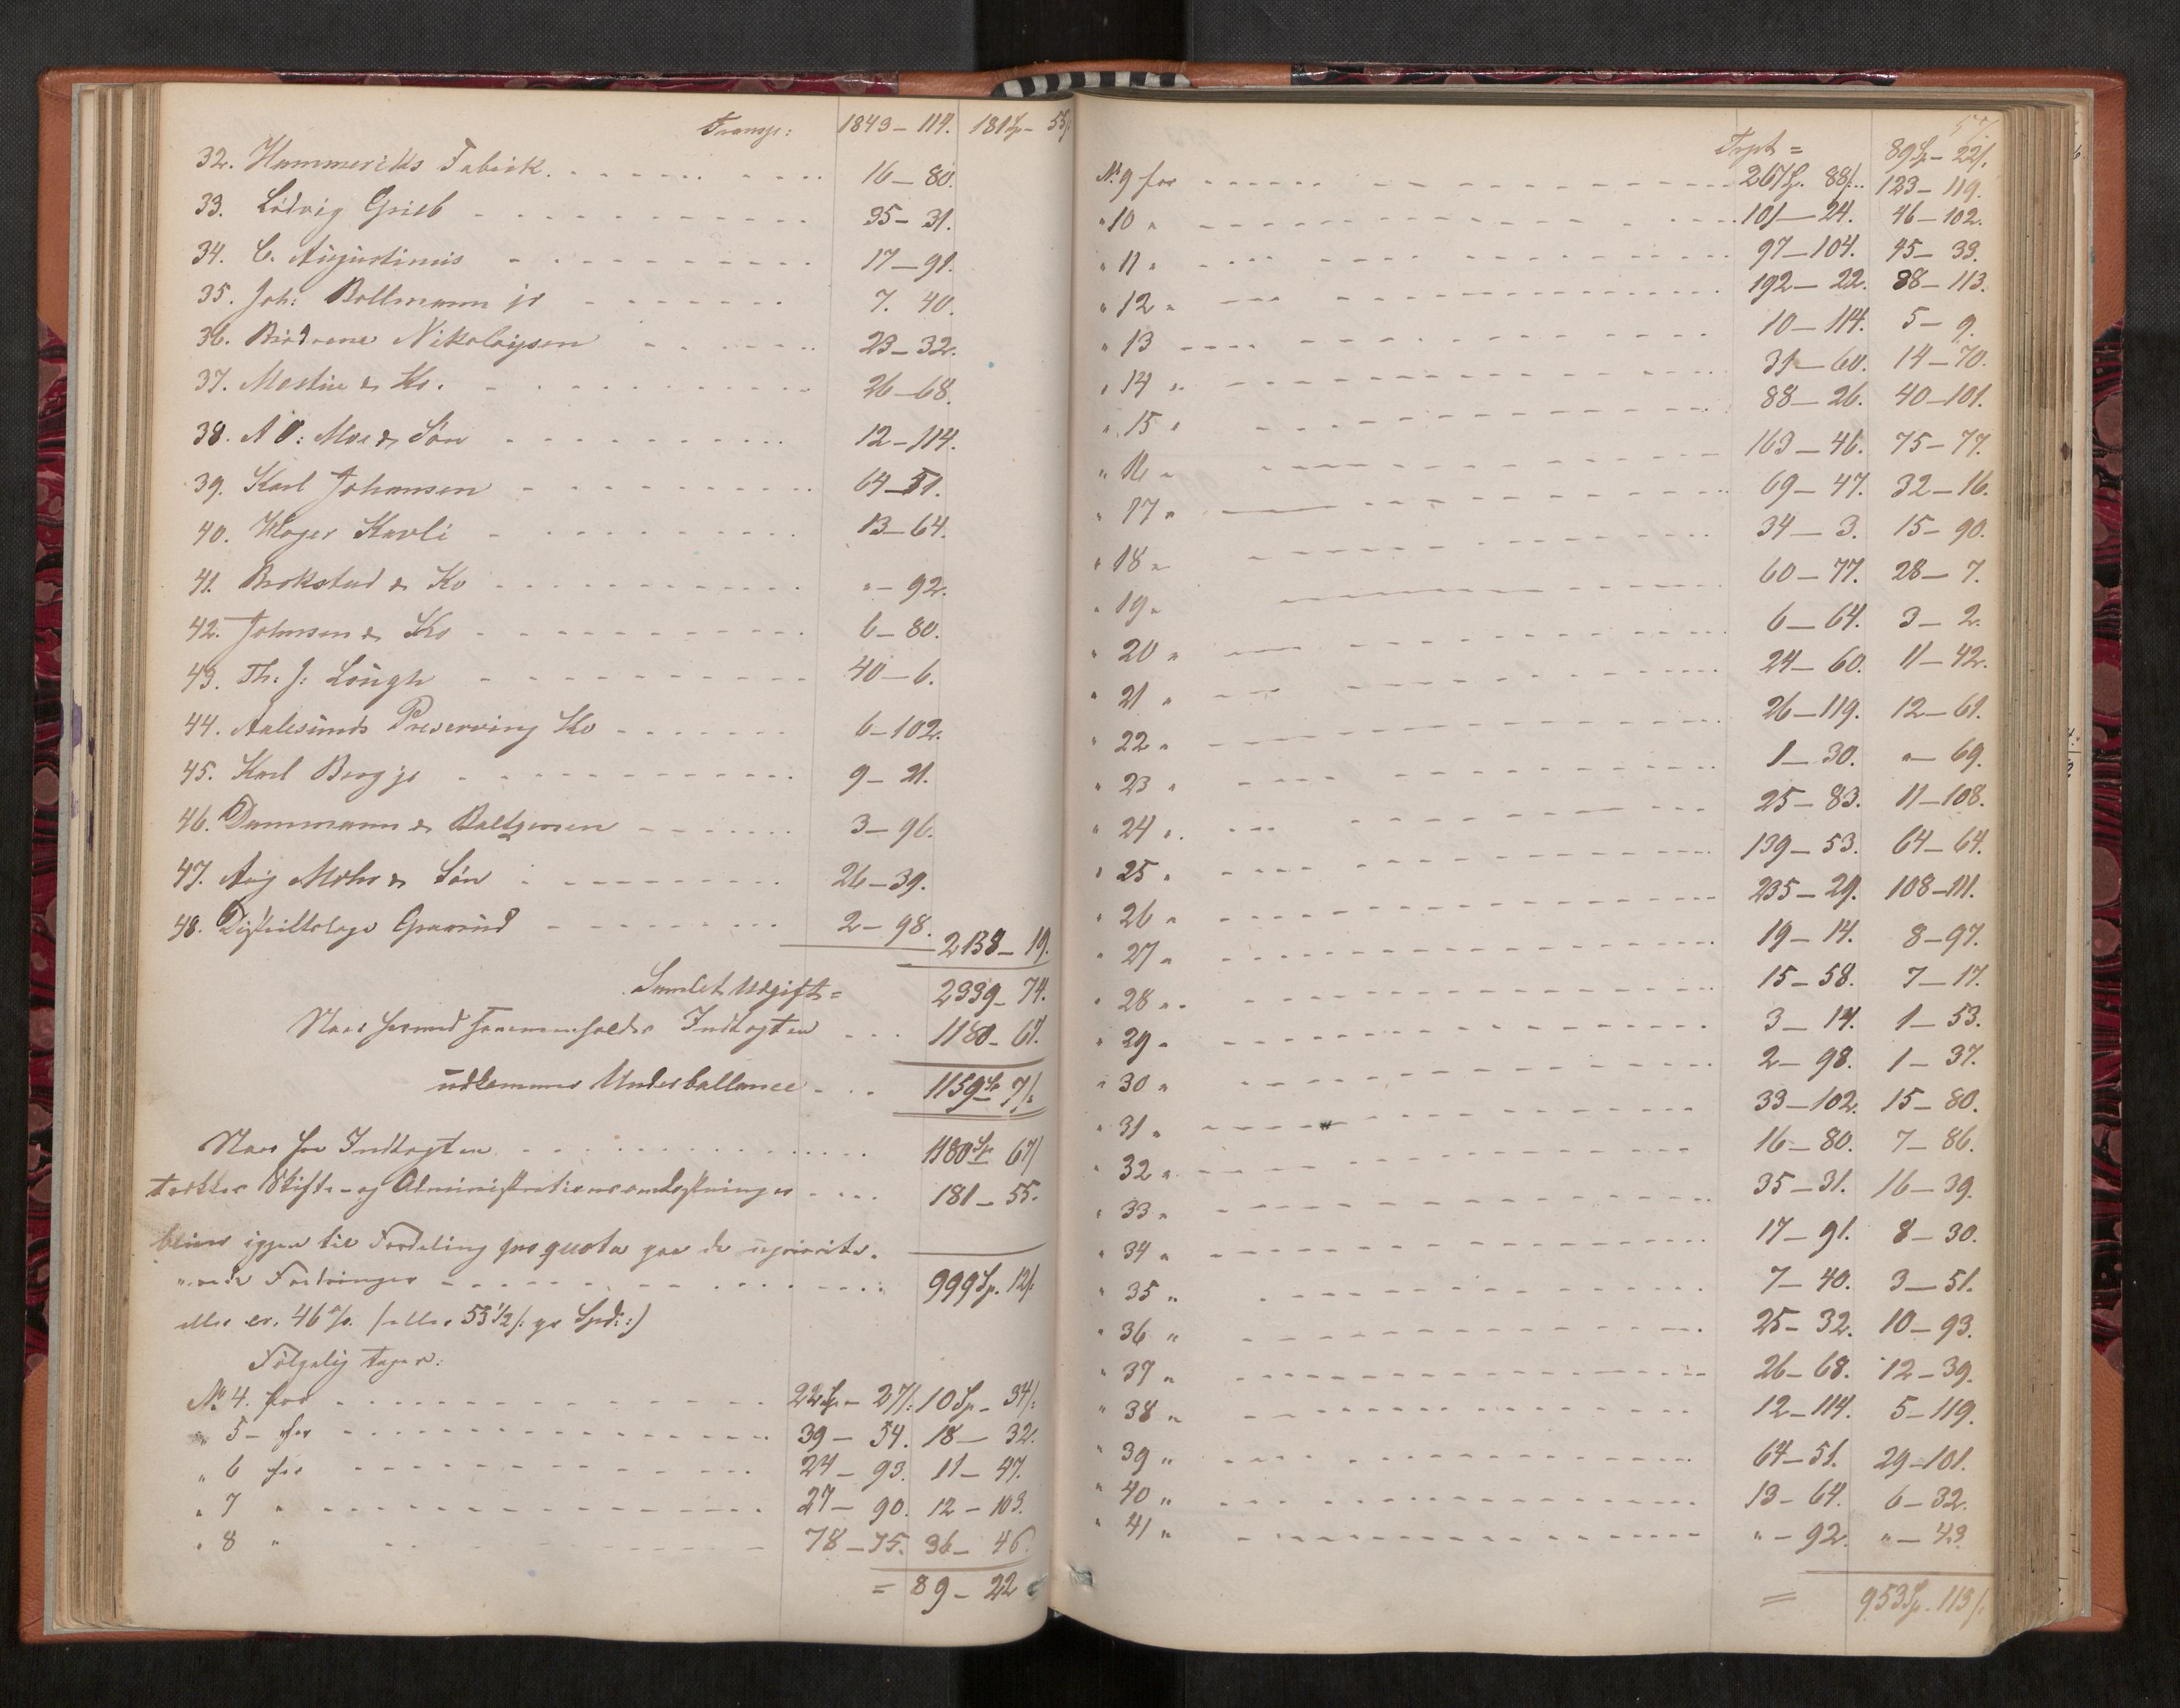 Transp: 1843 – 114. 181 Sp – 55/
32. Hammeriks Fabrik. 16 – 80.
33. Lúdvig Grieb 35 – 31.
34. C. Aúgústinús 17 – 91.
35. Joh: Bollmann jr 7. 40.
36. Brødrene Nikolaysen 23 – 32.
37. & Ko. 26 – 68.
38. A O: Moe & Søn 12 – 114.
39. Karl Johansen 64 – 51.
40. Kavli 13 – 64.
41. Brokstad & Ko " – 92.
42. Johnsen & Ko 6 – 80.
43. Th. J: Lóugh 40 – 6.
44. Aalesúnds Preserving Ko 6 – 102.
45. Karl Berg jr 9 – 21.
46. Dammann & 3 – 96.
47. Aúg Mohr & Søn 26 – 39.
48. Distriktslæge Graarúd 2 – 98. 2158 – 19.
Samlet Udgift = 2339 – 74.
Naar hermed sammenholdes Indtægten 1180 – 67.
údkommer Underballance 1159 Sp 7/:
Naar fra Indtægten 1180 Sp 67/
trækkes Skifte- og Administrationsomkostninger 181 – 55.
bliver igjen til Fordeling pro quota paa de úpriorite-
rede Fordringer 999 Sp. 12/:
eller ca. 46 % (eller 53 1/2 /: pr Spd:)
Følgelig tager:
No 4. for 22 Sp – 27/: 10 Sp – 34/:
" 5 – for 39 – 54. 18 – 32.
" 6 for 24 – 93. 11 – 47.
" 7 " 27 – 90. 12 – 103.
" 8 " 78 – 75. 36 – 46.
= 89 – 22
57/.
Trpt = 89 Sp – 22/.
No 9 for 267 Sp. 88/. 123 – 119.
" 10 " 101 – 24. 46 – 102.
" 11 " 97 – 104. 45 – 33.
" 12 " 192 – 22. 88 – 113.
" 13 10 – 114. 5 – 9.
" 14 " 31 – 60. 14 – 70.
" 15 " 88 – 26. 40 – 101.
" 16 " 163 – 46. 75 – 77.
" 17 " 69 – 47. 32 – 16.
" 18 " 34 – 3. 15 – 90.
" 19 " 60 – 77. 28 – 7.
" 20 " 6 – 64. 3 – 2.
" 21 " 24 – 60. 11 – 42.
" 22 " 26 – 119. 12 – 61.
" 23 " 1 – 30. " – 69.
" 24 " 25 – 83. 11 – 108.
" 25 " 139 – 53. 64 – 64.
" 26 " 235 – 29. 108 – 111.
" 27 " 19 – 14. 8 – 97.
" 28 " 15 – 58. 7 – 17.
" 29 " 3 – 14. 1 – 53.
" 30 " 2 – 98. 1 – 37.
" 31 " 33 – 102. 15 – 80.
" 32 " 16 – 80. 7 – 86.
" 33 " 35 – 31. 16 – 39.
" 34 " 17 – 91. 8 – 30.
" 35 " 7 – 40. 3 – 51.
" 36 " 25 – 32. 10 – 93.
" 37 " 26 – 68. 12 – 39.
" 38 " 12 – 114. 5 – 119.
" 39 " 64 – 51. 29 – 101.
" 40 " 13 – 64. 6 – 32.
" 41 " " – 92. " – 43.
= 953 Sp. 113/.